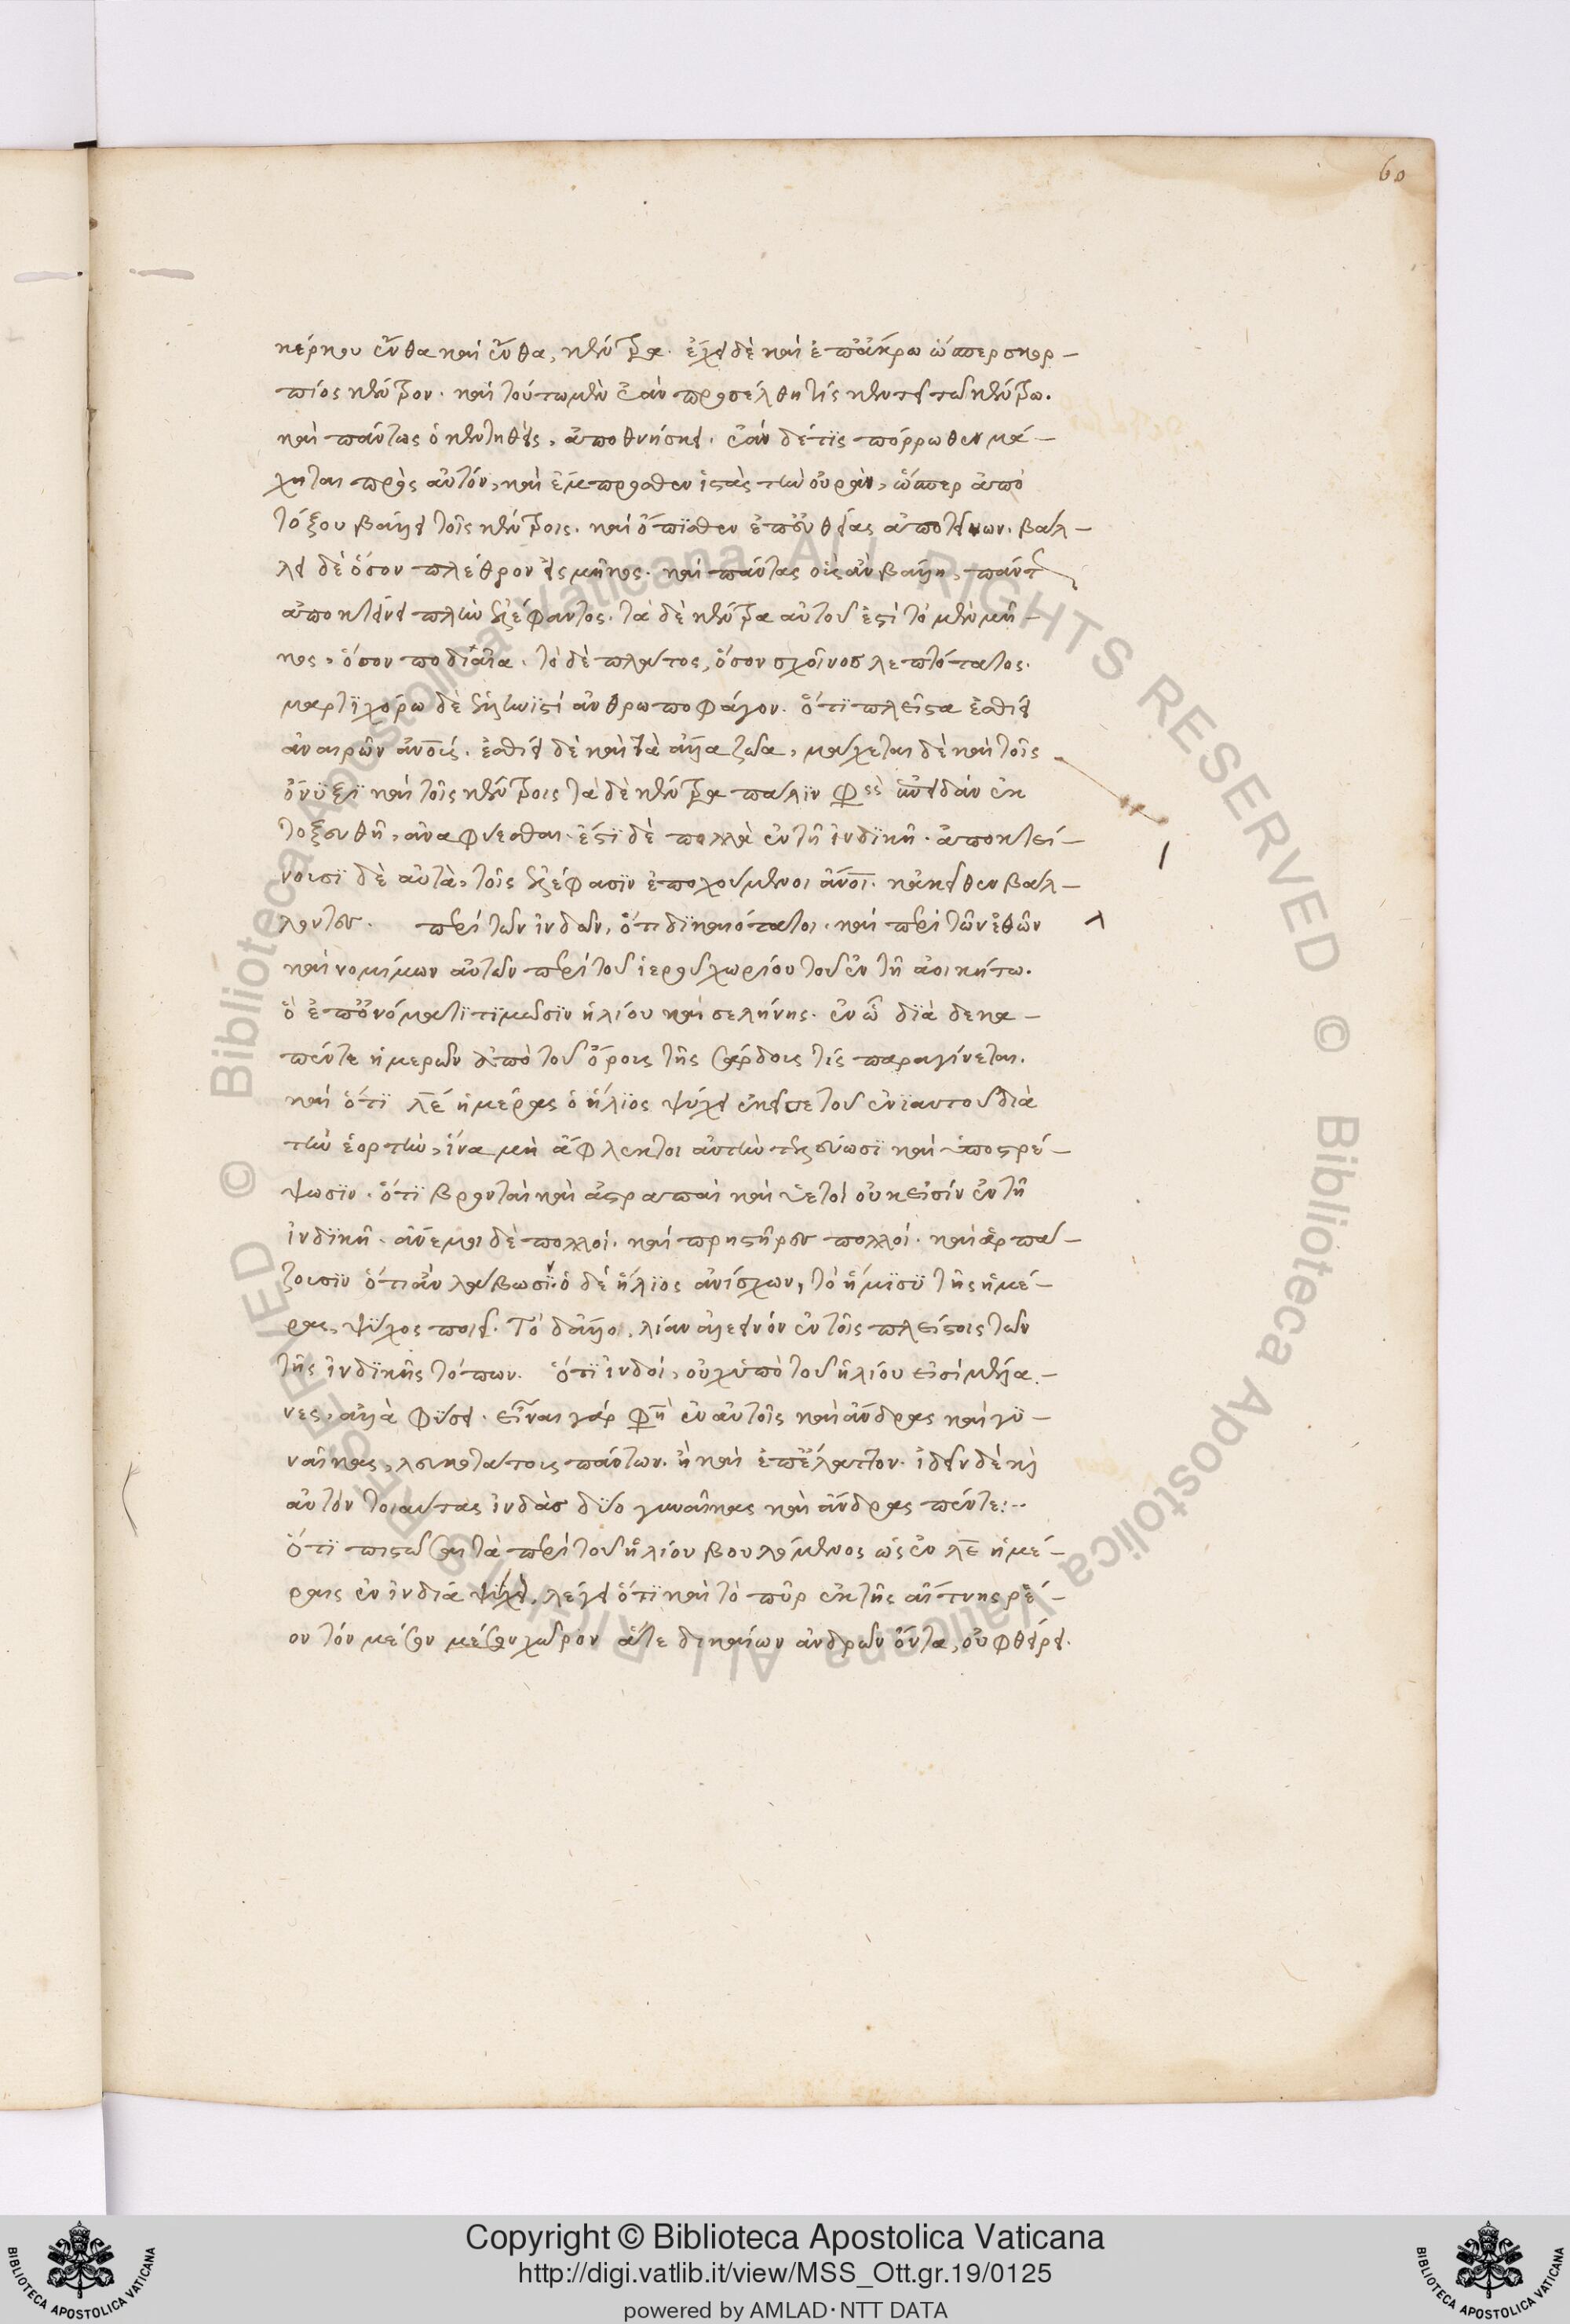 60
κέρκου ἔνθα καὶ ἔνθα, κέντρα. ἔχει δὲ καὶ ἐπ' ἄκρω ὥσπερ σκορ-
πίος κέντρον. καὶ τούτω μὲν ἐὰν προσέλθη τίς κεντεῖ τῶ κέντρω.
καὶ πάντως ὁ κεντηθεὶς, ἀποθνήσκει. ἐὰν δέ τις πόρρωθεν μά-
χηται πρὸς αὐτόν, καὶ ἔμπροσθεν ἱστὰς τὴν οὐρὰν, ὥσπερ ἀπὸ
τόξου βάλλει τοῖς κέντροις. καὶ ὄπισθεν ἐπ' εὐθείας ἀποτείνων. βάλ-
λει δὲ ὅσον πλέθρον εἰς μῆκος. καὶ πάντας οἷς ἂν βάλλη, πάντως
ἀποκτείνει πλὴν ἐλέφαντος. τὰ δὲ κέντρα αὐτοῦ ἐστὶ τὸ μὲν μῆ-
κος, ὅσον ποδιαῖα. τὸ δὲ πλάτος, ὅσον σχοῖνος λεπτότατος.
μαρτιχόρω δὲ ἑλληνιστὶ ἀνθρωποφάγον. ὅτι πλεῖστα ἐσθίει
ἀναιρῶν ἀνους. ἐσθίει δὲ καὶ τὰ ἄλλα ζῶα, μάχεται δὲ καὶ τοῖς
ὄνυξι καὶ τοῖς κέντροις τὰ δὲ κέντρα πάλιν φησὶ ἐκ
τοξευθῆ, ἀναφύεσθαι. ἔστι δὲ πολλὰ ἐν τῆ ἰνδικῆ. ἀποκτεί-
νουσι δὲ αὐτὰ, τοῖς ἐλέφασιν ἐποχούμενοι ἄνοι. κἀκεῖθεν βάλ-
λοντες. περὶ τῶν ἰνδῶν, ὅτι δικαιότατοι. καὶ περὶ τῶν ἐθῶν
καὶ νομίμων αὐτῶν περὶ τοῦ ἱεροῦ χωρίου τοῦ ἐν τῆ ἀοικήτω.
ὃ ἐπ' ὀνόματι τιμῶσιν ἡλίου καὶ σελήνης. ἐν ὧ διὰ δεκα-
πέντε ἡμερῶν ἀπὸ τοῦ ὄρους τῆς σάρδους τίς παραγίνεται.
καὶ ὅτι λε ἡμέρας ὁ ἥλιος ψύχει ἐκεῖσε τοῦ ἐνιαυτοῦ διὰ
τὴν ἑορτὴν, ἵνα μὴ ἄφλεκτοι αὐτὴν τελέσωσι καὶ ὑποστρέ-
ψωσιν. ὅτι βρονταὶ καὶ ἀστραπαὶ καὶ ὑετοὶ οὐκ εἰσὶν ἐν τῆ
ἰνδικῆ. ἄνεμοι δὲ πολλοί. καὶ πρηστῆρες πολλοί. καὶ ἁρπά-
ζουσιν ὅτι ἂν λάβωσιν. ὁ δὲ ἥλιος ἀνίσχων, τὸ ἥμισυ τῆς ἡμέ-
ρας, ψύχος ποιεῖ. Τὸ δ' ἄλλο, λίαν ἀλεεινόν ἐν τοῖς πλείστοις τῶν
τῆς ἰνδικῆς τόπων. ὅτι ἰνδοί, οὐχ ὑπὸ τοῦ ἡλίου εἰσὶ μέλα-
νες, ἀλλὰ φύσει. εἶναι γάρ φησὶ ἐν αὐτοῖς καὶ ἄνδρας καὶ γυ-
ναῖκας, λευκοτάτους πάντων. ἢ καὶ ἐπ' ἔλαττον. ἰδεῖν δὲ καὶ
αὐτὸν τοιαύτας ἰνδὰς δύο γυναῖκας καὶ ἄνδρας πέντε:--
ὅτι πιστῶσαι τὰ περὶ τοῦ ἡλίου βουλόμενος ὡς ἐν λε ἡμέ-
ραις ἐν ἰνδία ψύχει, λέγει ὅτι καὶ τὸ πῦρ ἐκ τῆς αἴτνης ῥέ-
ον τὸν μέσον μέσον χῶρον ἅτε δικαίων ἀνδρῶν ὄντα, οὐ φθείρει.
Copyright © Biblioteca Apostolica Vaticana
http://digi.vatlib.it/view/MSS_Ott.gr.19/0125
powered by AMLAD·NTT DATA